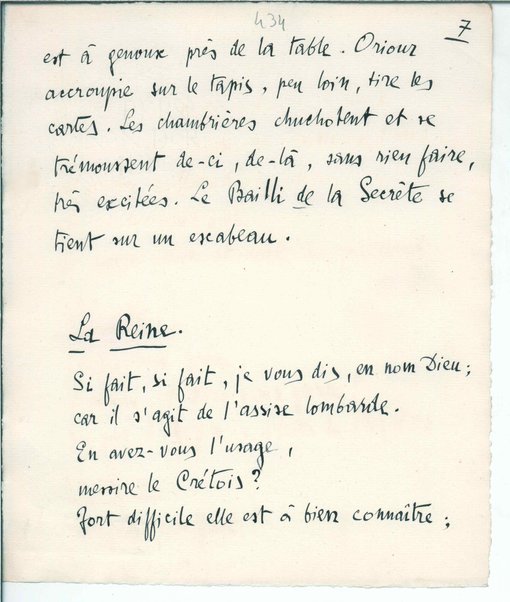 434
7
est à genoux près de la table. Oriour
accroupie sur le tapis, peu loin, tire les
cartes. Les chambrières chuchotent et se
trémoussent de-ci, de-là, sans rien faire,
très excitées. Le Bailli de la Secrète se
tient sur un escabeau.
La Reine.
Si fait, si fait, je vous dis, en nom Dieu ;
car il s'agit de l'assise lombarde.
En avez-vous l'usage,
messire le Crétois ?
Fort difficile elle est à bien connaître ;